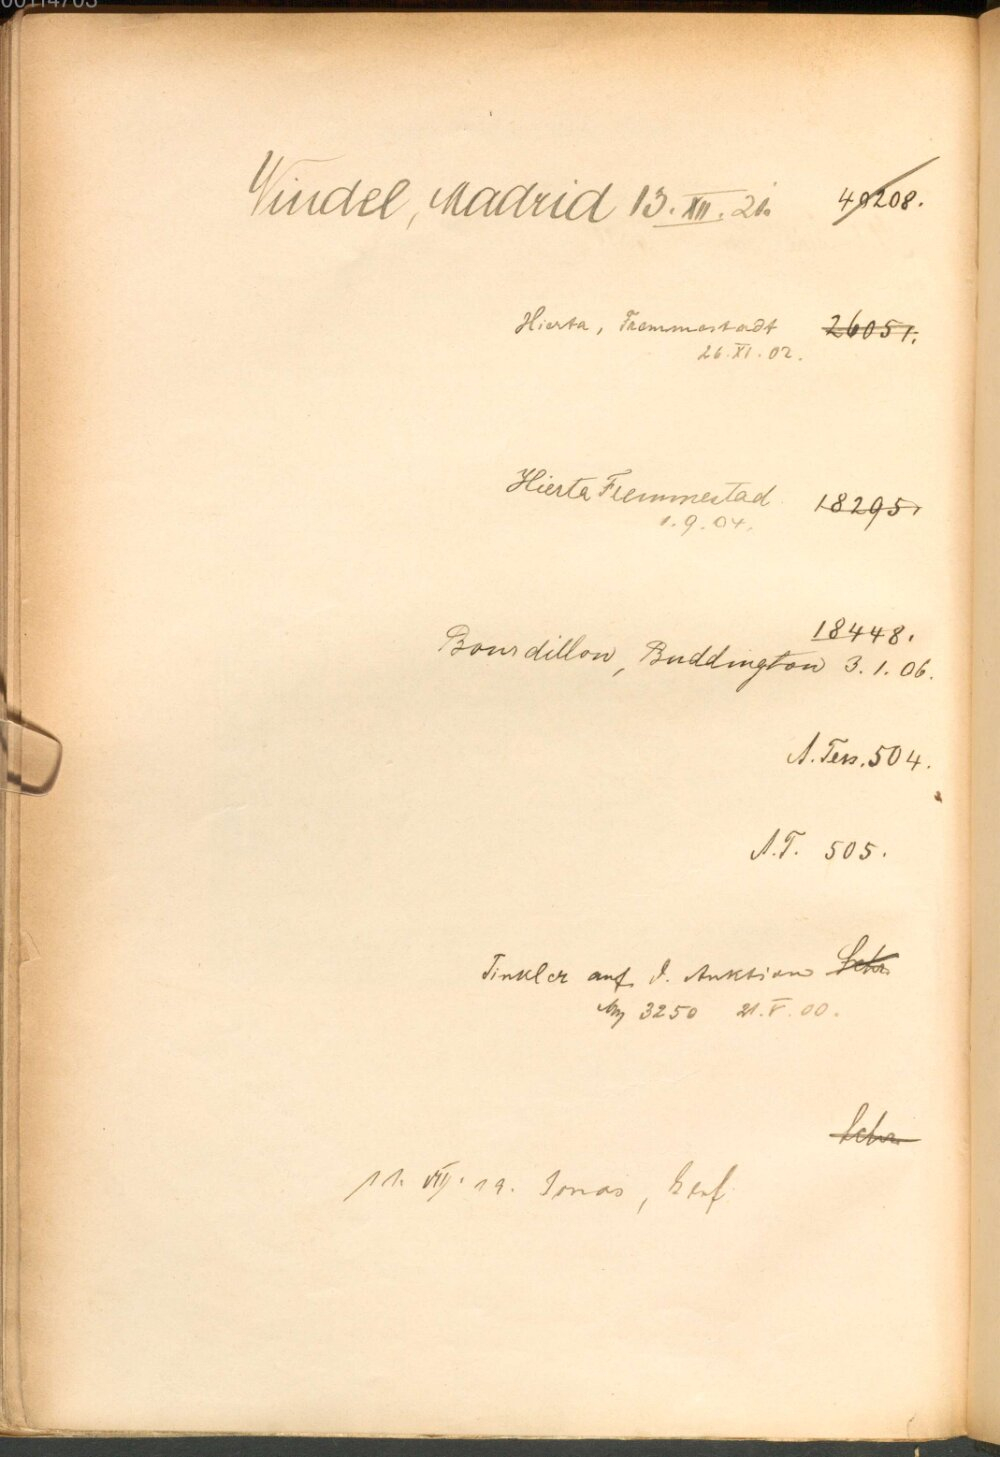 Vindel, Madrid 13. XII. 21. 49208.
Hierta, Fremmestadt 26051.
26. XI. 02.
Hierta Fremmestad 18295
1. 9. 04.
18448.
Bourdillon, Buddington 3. 1. 06.
A. Ters. 504.
A. T. 505.
Tinkler auf J. Auktion Schr.
3250 21. V. 00.
Schr.
11. VII. 19. Jonas, Genf.